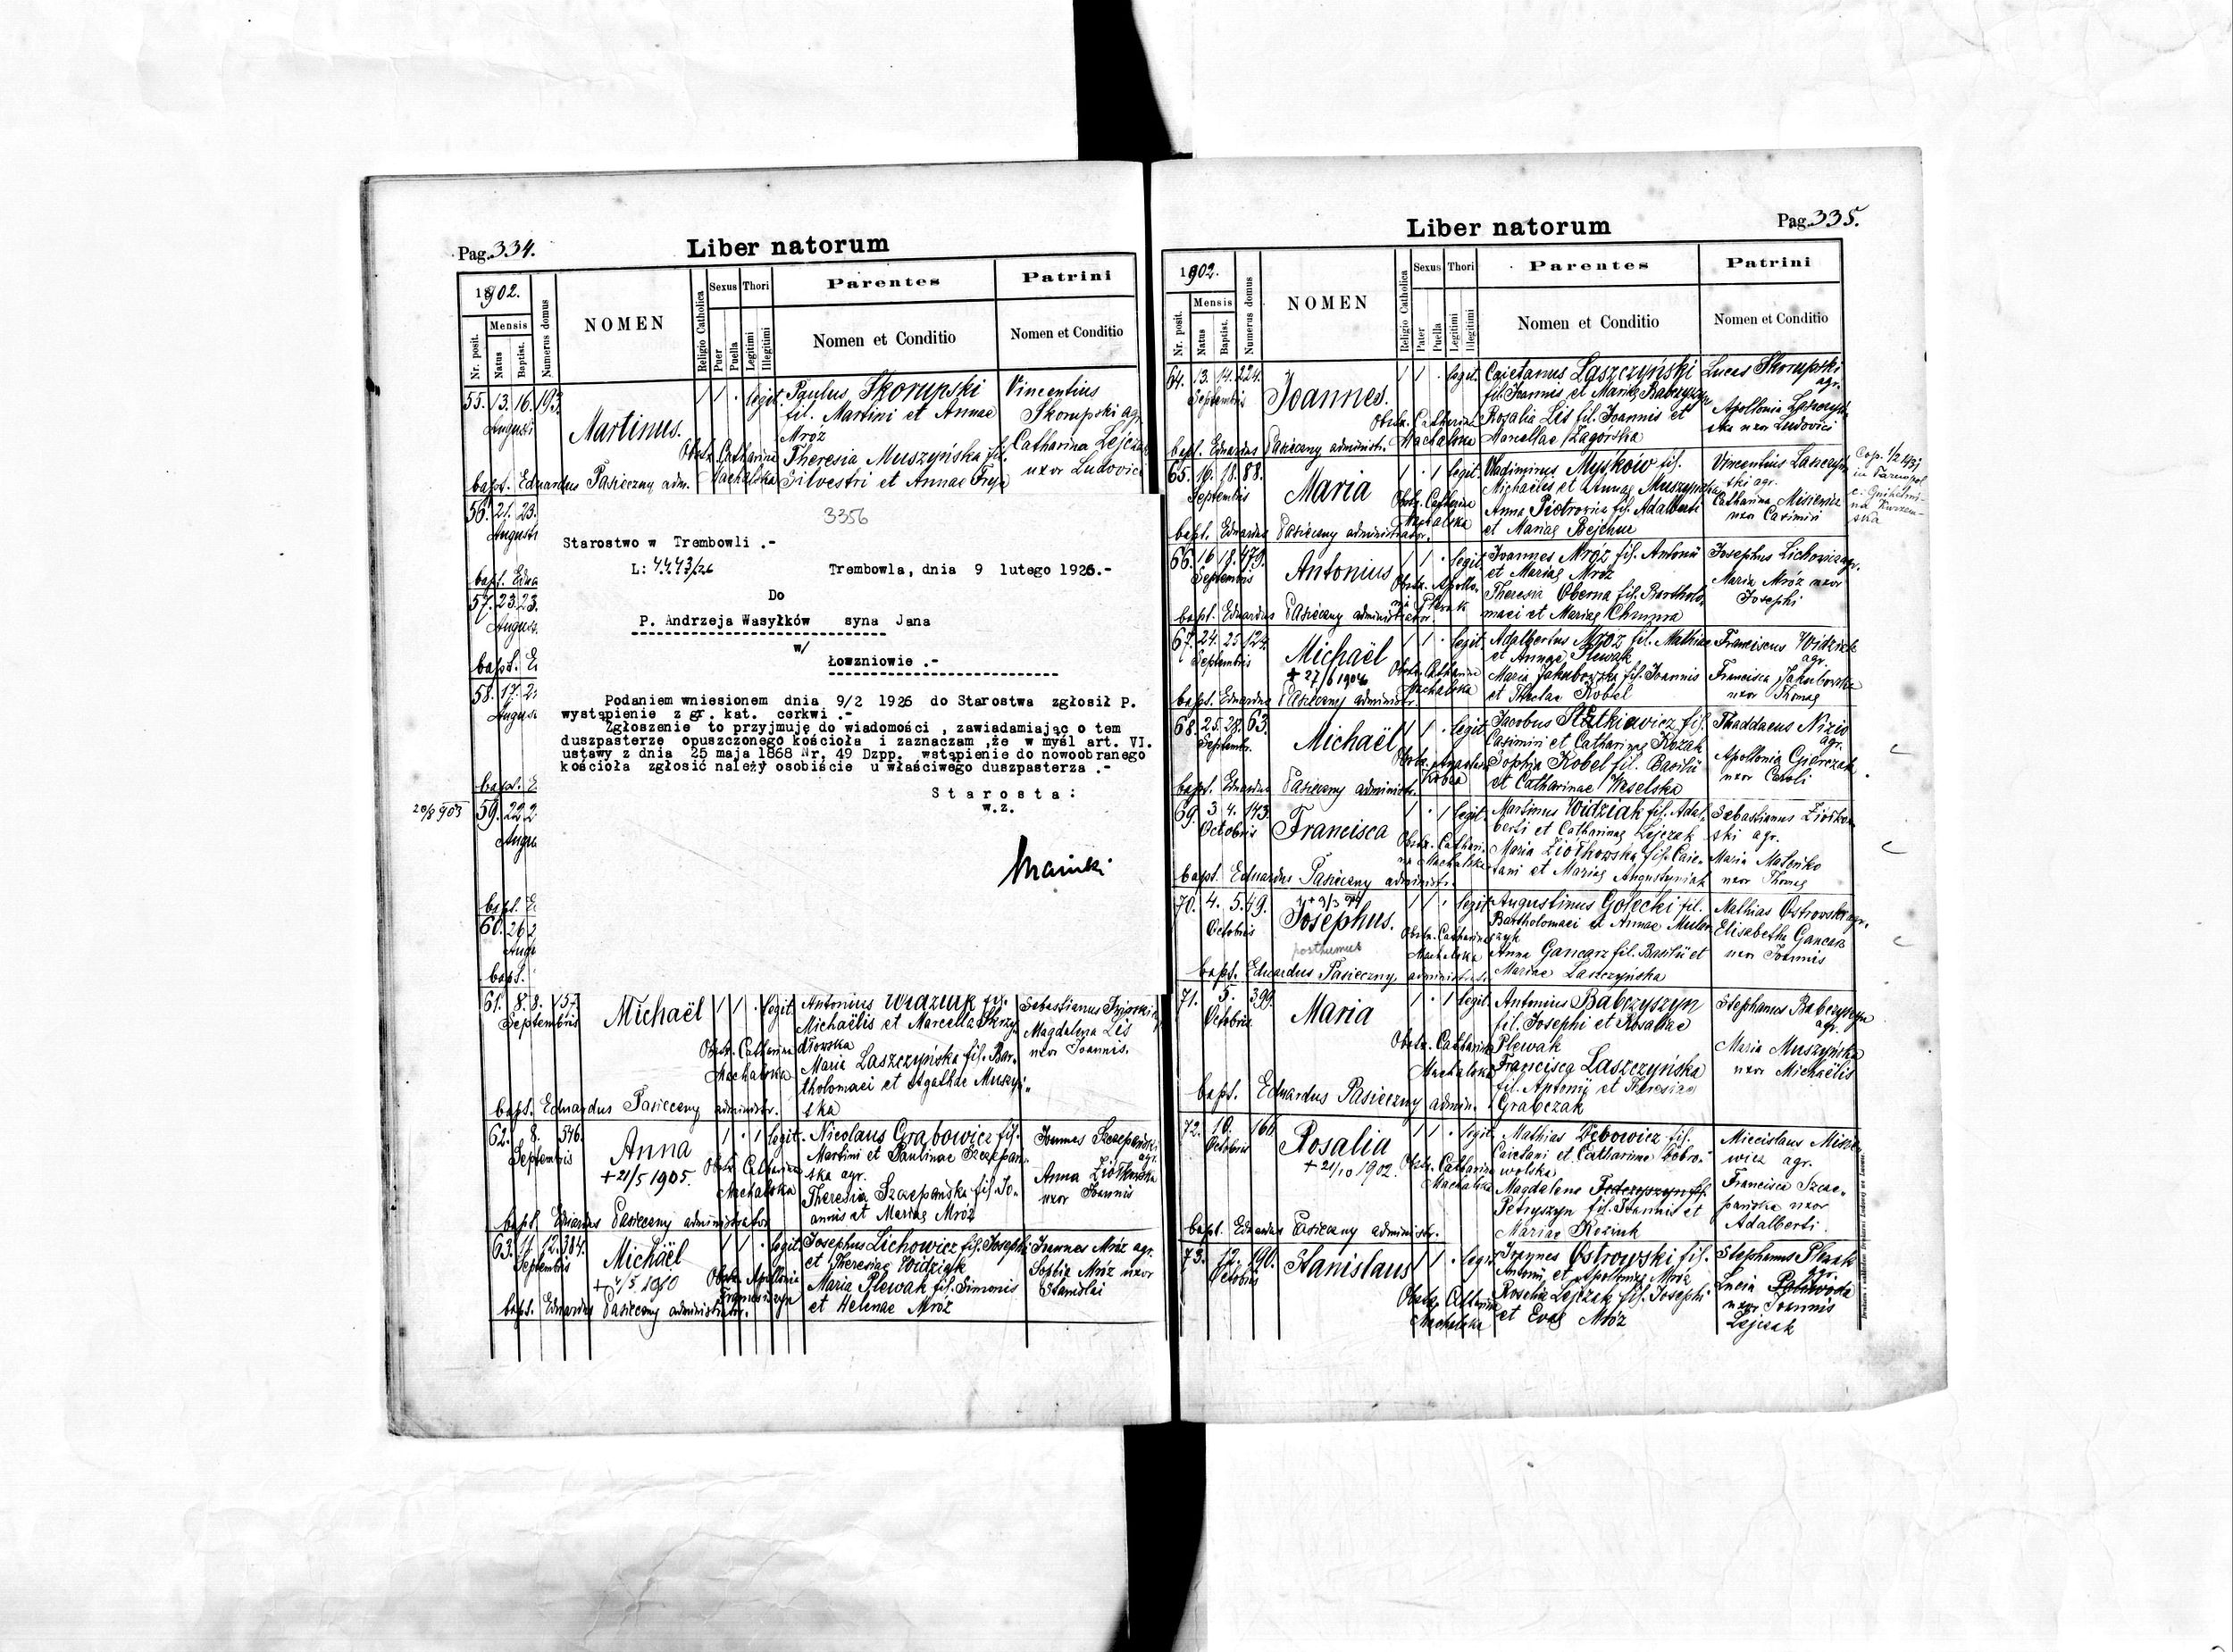 Pag. 334.
Liber natorum
1902.
Nr. posit.
Mensis
Natus
Baptist.
Numerus domus
NOMEN
Religio Catholica
Sexus
Puer
Puella
Thori
Legitimi
Illegitimi
Parentes
Nomen et Conditio
Patrini
Nomen et Conditio
55. 13. 16. 193.
Augusti
Martinus.
legit.
Obstr. Catharina
Machalska
Paulus Skorupski
fil. Martini et Annae
Mróz
Theresia Muszyńska fil.
Silvestri et Annae
Vincentius
Skorupski agr.
Catharina Lejczak
uxor Ludovici
bapt. Eduardus Pasieczny adm.
56. 21. 23.
Augusti
bapt.
57. 23. 23.
bapt.
58. 17.
bapt.
20/8 903
59. 22
bapt.
60. 26
bapt.
3356
Starostwo w Trembowli .-
L: 4473/26
Trembowla, dnia 9 lutego 1926.-
Do
P. Andrzeja Wasyłków syna Jana
w/
Łoszniowie .-
Podaniem wniesionem dnia 9/2 1926 do Starostwa zgłosił P.
wystąpienie z gr. kat. cerkwi .-
Zgłoszenie to przyjmuję do wiadomości , zawiadamiając o tem
duszpasterze opuszczonego kościoła i zaznaczam ,że w myśl art. VI.
ustawy z dnia 25 maja 1868 Nr. 49 Dzpp. wstąpienie do nowoobranego
kościoła zgłosić należy osobiście u właściwego duszpasterza .-
Starosta:
w.z.
61. 8. 8. 157.
Septembris
Michaël
legit.
Obstr. Catharina
Machalska
Antonius Widziak fil.
Michaëlis et Marcella Skrzy-
dłowska
Maria Laszczyńska fil. Bar-
tholomaei et Agathae Muszyń-
ska
Sebastianus
Magdalena Lis
uxor Joannis.
bapt. Eduardus Pasieczny administr.
62. 8. 346.
Septembris
Anna
+ 21/5 1905.
legit.
Obstr. Catharina
Machalska
Nicolaus Grabowicz fil.
Martini et Paulinae Szczepań-
ska agr.
Theresia Szczepańska fil. Jo-
annis et Mariae Mróz
Joannes Szczepański
agr.
Anna Ziółkowska
uxor Joannis
bapt. Eduardus Pasieczny administrator
63. 11. 12. 384.
Septembris
Michaël
legit.
Obstr. Apollonia
Josephus Lichowicz fil. Josephi
et Theresiae Widziak
Maria Plewak fil. Simonis
et Helenae Mróz
Joannes Mróz agr.
Sophia Mróz uxor
Stanislai
bapt. Eduardus Pasieczny administrator.
Pag. 335.
Liber natorum
1902.
Nr. posit.
Mensis
Natus
Baptist.
Numerus domus
NOMEN
Religio Catholica
Sexus
Pater
Puella
Thori
Legitimi
Illegitimi
Parentes
Nomen et Conditio
Patrini
Nomen et Conditio
64. 13. 14. 224.
Septembris
Joannes.
legit.
Obstr. Catharina
Machalska
Caietanus Laszczyński
fil. Joannis et Mariae Babczyszyn
Rosalia Lis fil. Joannis et
Marcellae Zagórska
Lucas Skorupski
agr.
Apollonia Laszczyń-
ska uxor Ludovici
bapt. Eduardus Pasieczny administr.
65. 18. 88.
Septembris
Maria
legit.
Obstr. Catharina
Machalska
Vladimirus Myśków fil.
Michaëlis et Annae Muszyńska
Anna Piotrowicz fil. Adalberti
et Mariae
Vincentius Laszczyń-
ski agr.
Catharina Misiewicz
uxor Casimiri
bapt. Eduardus Pasieczny administrator.
66. 16. 18. 479.
Septembris
Antonius
legit.
Obstr. Apollo-
nia Plewak
Joannes Mróz fil. Antonii
et Mariae Mróz
Theresia Oberna fil. Bartholo-
maei et Mariae
Josephus Lichowicz agr.
Maria Mróz uxor
Josephi
bapt. Eduardus Pasieczny administrator.
67. 24. 25. 124.
Septembris
Michaël
+ 27/6 1904
legit.
Obstr. Catharina
Machalska
Adalbertus Mróz fil. Mathiae
et Annae Plewak
Maria Jakubowska fil. Joannis
et Theclae Kobel
Franciscus Widziak
agr.
Francisca Jakubowska
uxor Thomae
bapt. Eduardus Pasieczny administr.
68. 25. 28. 63.
Septembr.
Michaël
legit.
Jacobus
Casimiri et Catharinae Kozak
Sophia Kobel fil. Basilii
et Catharinae Weselska
Thaddaeus Nizio
agr.
Apollonia
uxor Caroli
bapt. Eduardus Pasieczny administr.
69. 3. 4. 143.
Octobris
Francisca
legit.
Obstr. Cathari-
na Machalska
Martinus Widziak fil. Adal-
berti et Catharinae Lejczak
Maria Ziółkowska fil. Caie-
tani et Mariae Augustyniak
Sebastianus Ziółkow-
ski agr.
Maria
uxor Thomae
bapt. Eduardus Pasieczny administr.
70. 4. 5. 49.
Octobris
Josephus.
posthumus
legit.
Obstr. Catharina
Machalska
Augustinus Gołecki fil.
Bartholomaei et Annae
Anna Gancarz fil. Basilii et
Mariae Laszczyńska
Mathias Ostrowski agr.
Elisabetha Gancarz
uxor Joannis
bapt. Eduardus Pasieczny administr.
71. 5. 399.
Octobris
Maria
legit.
Obstr. Catharina
Machalska
Antonius Babczyszyn
fil. Josephi et Rosaliae
Plewak
Francisca Laszczyńska
fil. Antonii et Theresiae
Grabczak
Stephanus Babczyszyn
agr.
Maria Muszyńska
uxor Michaëlis
bapt. Eduardus Pasieczny admin.
72. 10. 166.
Octobris
Rosalia
+ 21/10 1902.
legit.
Obstr. Catharina
Machalska
Mathias Dębowicz fil.
Caietani et Catharinae Dobro-
wolska
Magdalena
Petryszyn fil. Joannis et
Mariae
Miecislaus Misie-
wicz agr.
Francisca Szcze-
pańska uxor
Adalberti.
bapt. Eduardus Pasieczny administr.
73. 12. 190.
Octobris
Stanislaus
legit.
Obstr. Catharina
Machalska
Joannes Ostrowski fil.
Antonii et Apoloniae Mróz
Rosalia Lejczak fil. Josephi
et Evae Mróz
Stephanus Plewak
agr.
Lucia
uxor Joannis
Lejczak